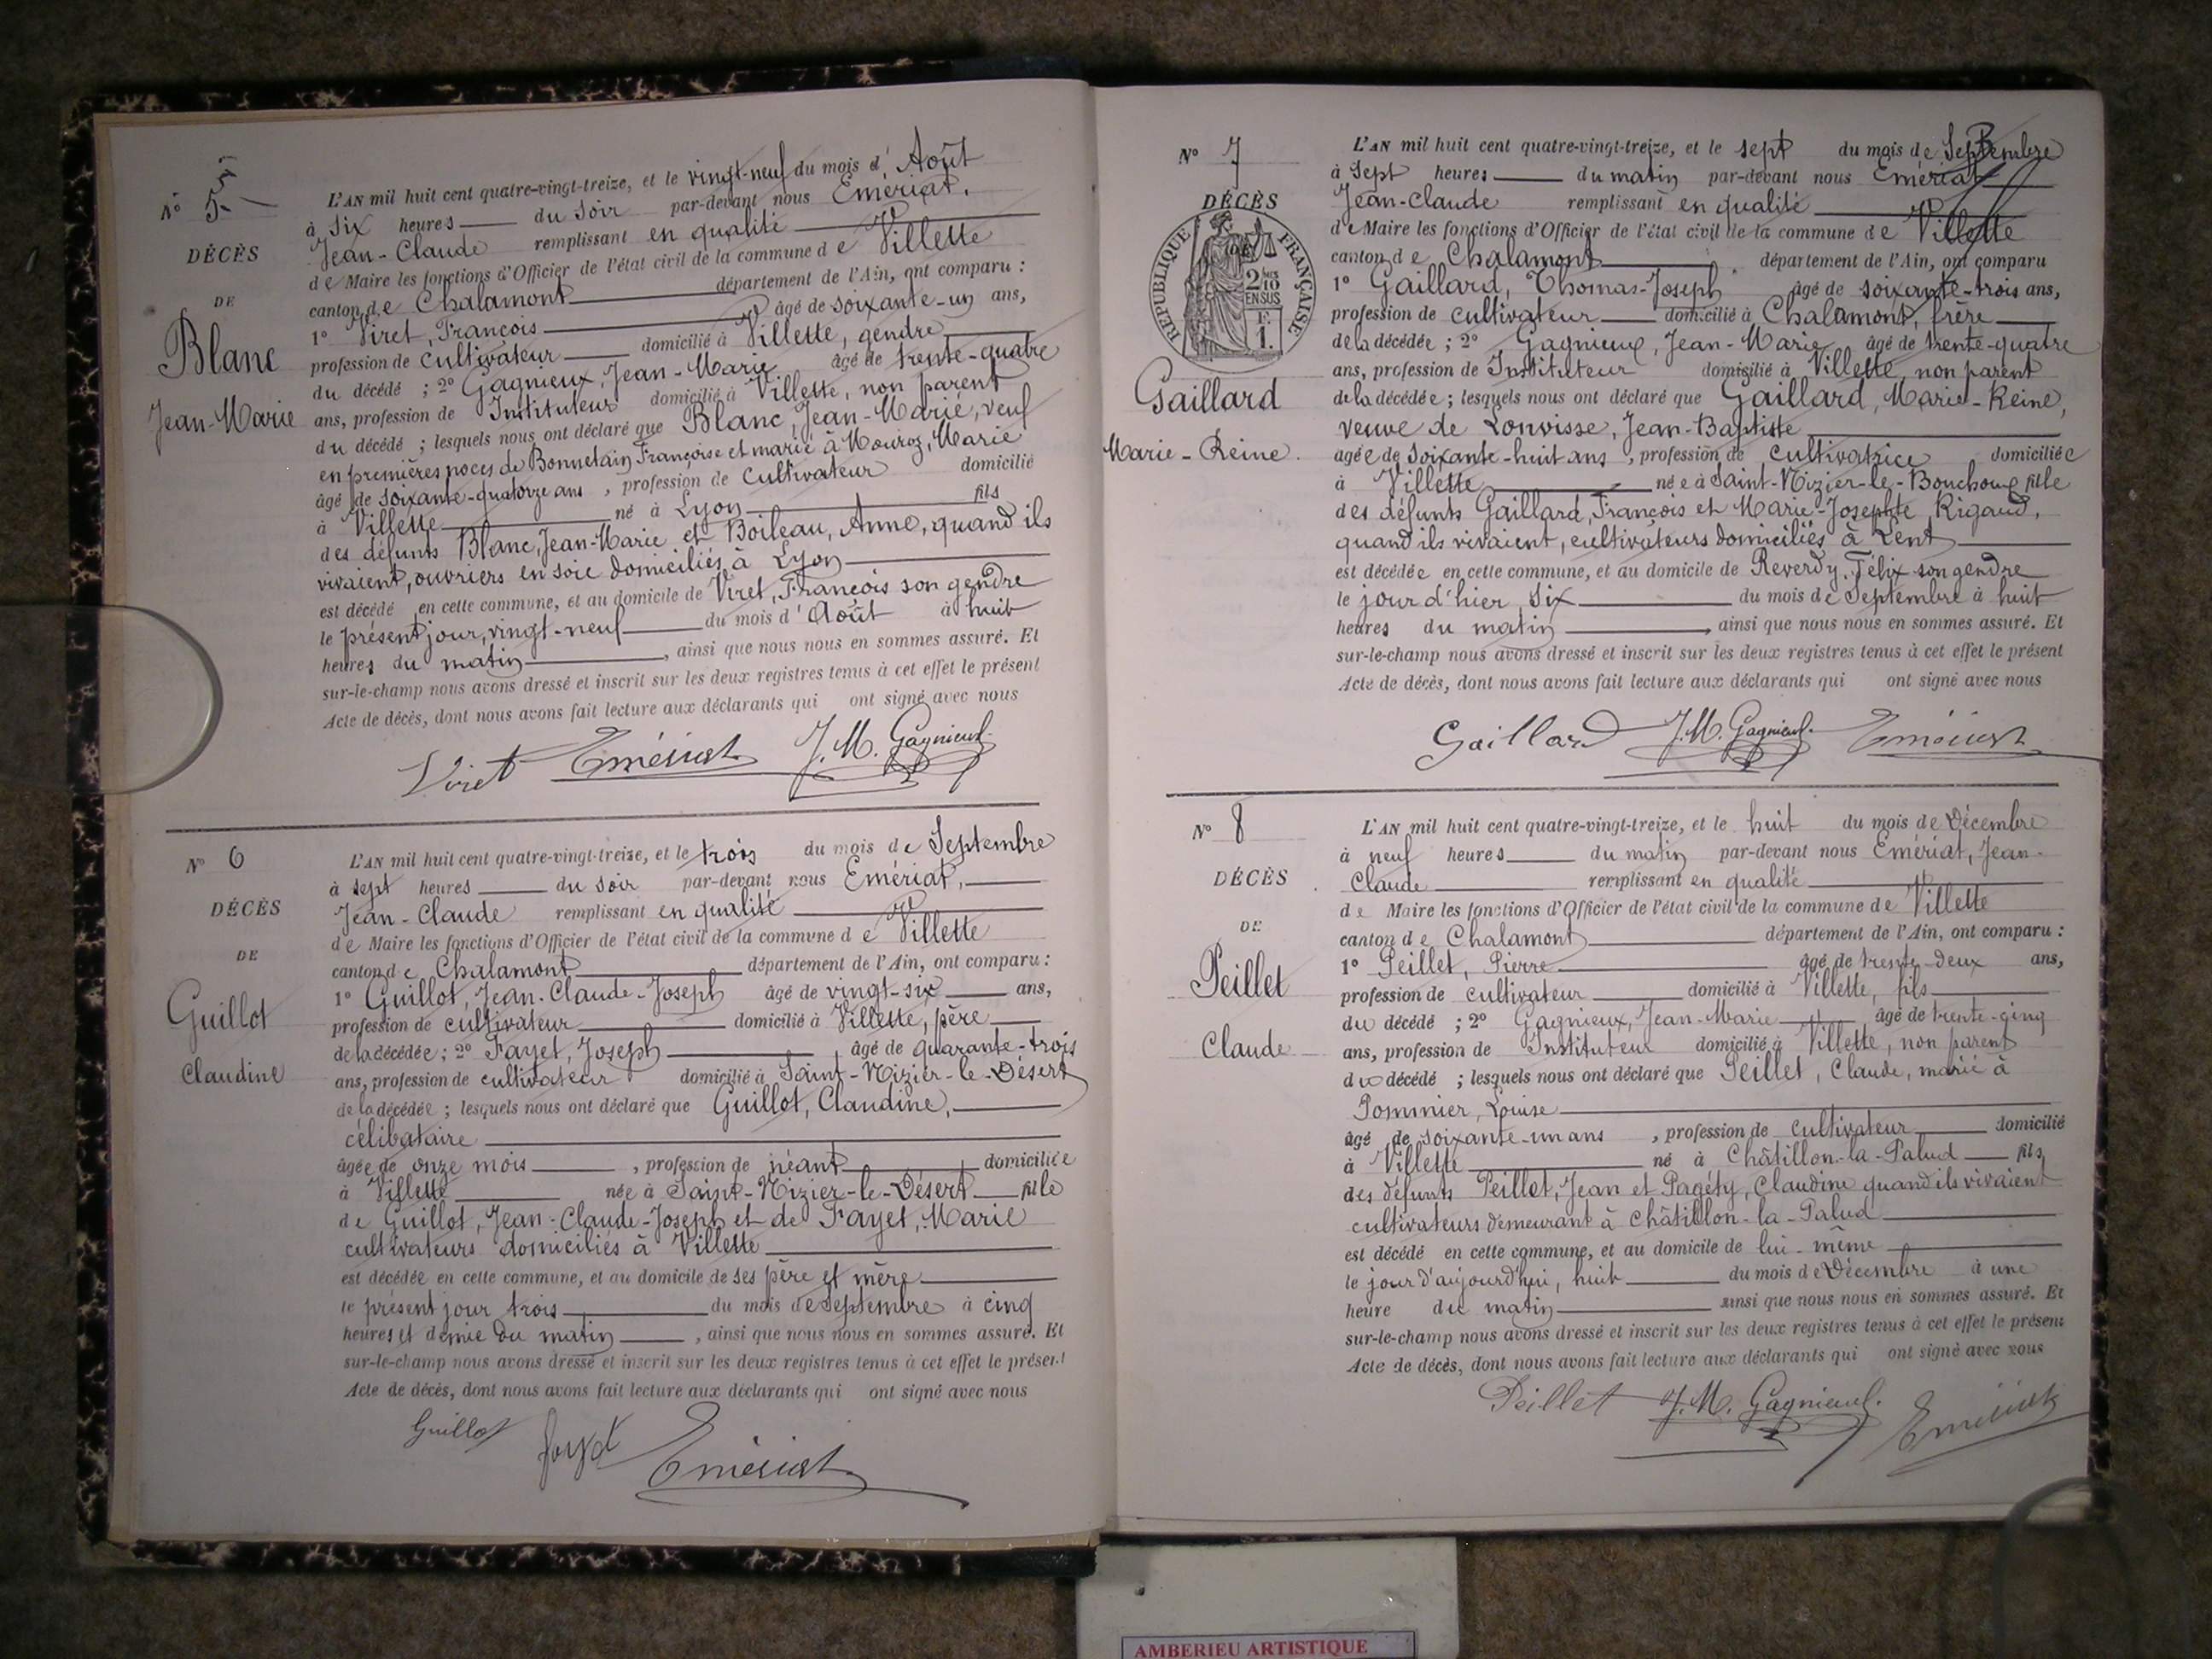 N° 5
DÉCÈS
DE
Blanc
Jean-Marie
L'AN mil huit cent quatre-vingt-treize, et le vingt-neuf du mois d'Août
à six heures du soir par-devant nous Emériat,
Jean-Claude remplissant en qualité
de Maire les fonctions d'Officier de l'état civil de la commune de Villette
canton de Chalamont département de l'Ain, ont comparu :
1° Viret, François âgé de soixante-un ans,
profession de cultivateur domicilié à Villette, gendre
du décédé ; 2° Gagnieux, Jean-Marie âgé de trente-quatre
ans, profession de Instituteur domicilié à Villette, non parent
du décédé ; lesquels nous ont déclaré que Blanc, Jean-Marie, veuf
en premières noces de Bonnetain Françoise et marié à Mouroz, Marie
âgé de soixante-quatorze ans, profession de cultivateur domicilié
à Villette né à Lyon fils
des défunts Blanc, Jean-Marie et Boileau, Anne, quand ils
vivaient, ouvriers en soie domiciliés à Lyon
est décédé en cette commune, et au domicile de Viret, François son gendre
le présent jour, vingt-neuf du mois d'Août à huit
heures du matin, ainsi que nous nous en sommes assuré. Et
sur-le-champ nous avons dressé et inscrit sur les deux registres tenus à cet effet le présent
Acte de décès, dont nous avons fait lecture aux déclarants qui ont signé avec nous
Viret Emériat J.M. Gagnieux
N° 6
DÉCÈS
DE
Guillot
Claudine
L'AN mil huit cent quatre-vingt-treize, et le trois du mois de Septembre
à sept heures du soir par-devant nous Emériat,
Jean-Claude remplissant en qualité
de Maire les fonctions d'Officier de l'état civil de la commune de Villette
canton de Chalamont département de l'Ain, ont comparu :
1° Guillot, Jean-Claude-Joseph âgé de vingt-six ans,
profession de cultivateur domicilié à Villette, père
de la décédée ; 2° Fayet, Joseph âgé de quarante-trois
ans, profession de cultivateur domicilié à Saint-Nizier-le-Désert
de la décédée ; lesquels nous ont déclaré que Guillot, Claudine,
célibataire
âgée de onze mois, profession de néant domiciliée
à Villette née à Saint-Nizier-le-Désert fille
de Guillot, Jean-Claude-Joseph et de Fayet, Marie
cultivateurs domiciliés à Villette
est décédée en cette commune, et au domicile de ses père et mère
le présent jour trois du mois de Septembre à cinq
heures et demie du matin, ainsi que nous nous en sommes assuré. Et
sur-le-champ nous avons dressé et inscrit sur les deux registres tenus à cet effet le présent
Acte de décès, dont nous avons fait lecture aux déclarants qui ont signé avec nous
Guillot Fayet Emériat
N° 7
DÉCÈS
DE
RÉPUBLIQUE FRANÇAISE
2/10 EN SUS
F. 1.
Gaillard
Marie-Reine.
L'AN mil huit cent quatre-vingt-treize, et le sept du mois de Septembre
à sept heures du matin par-devant nous Emériat
Jean-Claude remplissant en qualité
de Maire les fonctions d'Officier de l'état civil de la commune de Villette
canton de Chalamont département de l'Ain, ont comparu
1° Gaillard, Thomas-Joseph âgé de soixante-trois ans,
profession de cultivateur domicilié à Chalamont, frère
de la décédée ; 2° Gagnieux, Jean-Marie âgé de trente-quatre
ans, profession de Instituteur domicilié à Villette, non parent
de la décédée ; lesquels nous ont déclaré que Gaillard, Marie-Reine,
veuve de Lonvisse, Jean-Baptiste
âgée de soixante-huit ans, profession de cultivatrice domiciliée
à Villette née à Saint-Nizier-le-Bouchoux fille
des défunts Gaillard, François et Marie-Josephte Rigaud,
quand ils vivaient, cultivateurs domiciliés à Lent
est décédée en cette commune, et au domicile de Reverdy, Félix son gendre
le jour d'hier, six du mois de Septembre à huit
heures du matin, ainsi que nous nous en sommes assuré. Et
sur-le-champ nous avons dressé et inscrit sur les deux registres tenus à cet effet le présent
Acte de décès, dont nous avons fait lecture aux déclarants qui ont signé avec nous
Gaillard J.M. Gagnieux. Emériat
N° 8
DÉCÈS
DE
Peillet
Claude
L'AN mil huit cent quatre-vingt-treize, et le huit du mois de Décembre
à neuf heures du matin par-devant nous Emériat, Jean-
Claude remplissant en qualité
de Maire les fonctions d'Officier de l'état civil de la commune de Villette
canton de Chalamont département de l'Ain, ont comparu :
1° Peillet, Pierre âgé de trente-deux ans,
profession de cultivateur domicilié à Villette, fils
du décédé ; 2° Gagnieux, Jean-Marie âgé de trente-cinq
ans, profession de Instituteur domicilié à Villette, non parent
du décédé ; lesquels nous ont déclaré que Peillet, Claude, marié à
Pommier, Louise
âgé de soixante-un ans, profession de cultivateur domicilié
à Villette né à Châtillon-la-Palud fils
des défunts Peillet, Jean et Pagéty, Claudine quand ils vivaient
cultivateurs demeurant à Châtillon-la-Palud
est décédé en cette commune, et au domicile de lui-même
le jour d'aujourd'hui, huit du mois de Décembre à une
heure du matin ainsi que nous nous en sommes assuré. Et
sur-le-champ nous avons dressé et inscrit sur les deux registres tenus à cet effet le présent
Acte de décès, dont nous avons fait lecture aux déclarants qui ont signé avec nous
Peillet J.M. Gagnieux. Emériat
AMBERIEU ARTISTIQUE